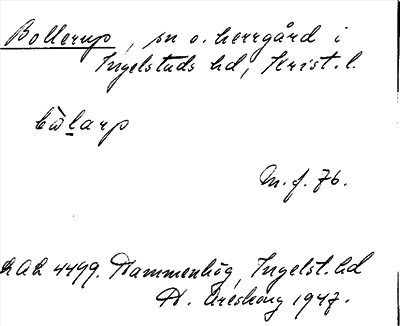 Bollerup, sn o. herrgård i
Ingelstads hd, Krist. l.
bò̀larp
M. f. 76.
LAL 4499. Hammenhög, Ingelst. hd
H. Areskog 1947.